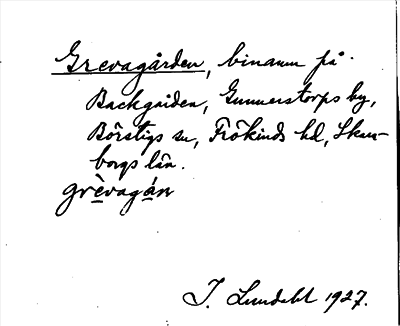 Grevagården, binamn på
Backgården, Gunnerstorps by,
Börstigs sn, Frökinds hd, Skara-
borgs län.
grèvagán
J. Lundahl 1927.